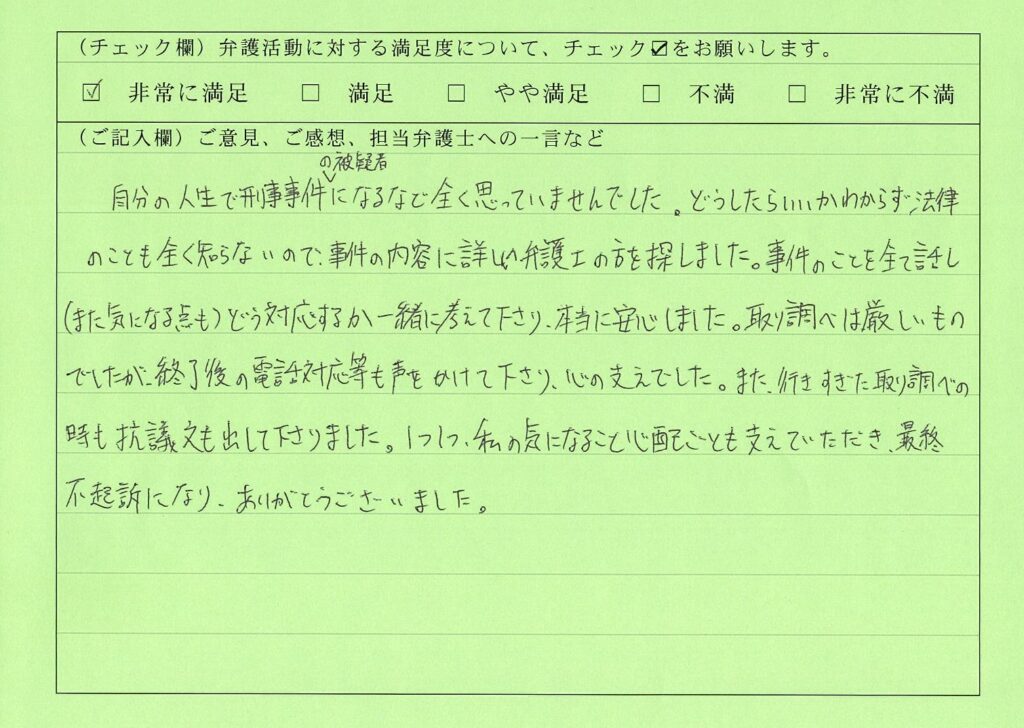 （チェック欄）弁護活動に対する満足度について、チェック☑をお願いします。
☑ 非常に満足 □ 満足 □ やや満足 □ 不満 □ 非常に不満
（ご記入欄）ご意見、ご感想、担当弁護士への一言など
の被疑者
自分の人生で刑事事件になるなど全く思っていませんでした。どうしたらいいかわからず法律
のことも全く知らないので、事件の内容に詳しい弁護士の方を探しました。事件のことを全て話し
(また気になる点も)どう対応するか一緒に考えて下さり、本当に安心しました。取り調べは厳しいもの
でしたが、終了後の電話対応等も声をかけて下さり、心の支えでした。また、行きすぎた取り調べの
時も抗議文も出して下さりました。1つ1つ、私の気になること心配ごとも支えていただき、最終
不起訴になり、ありがとうございました。